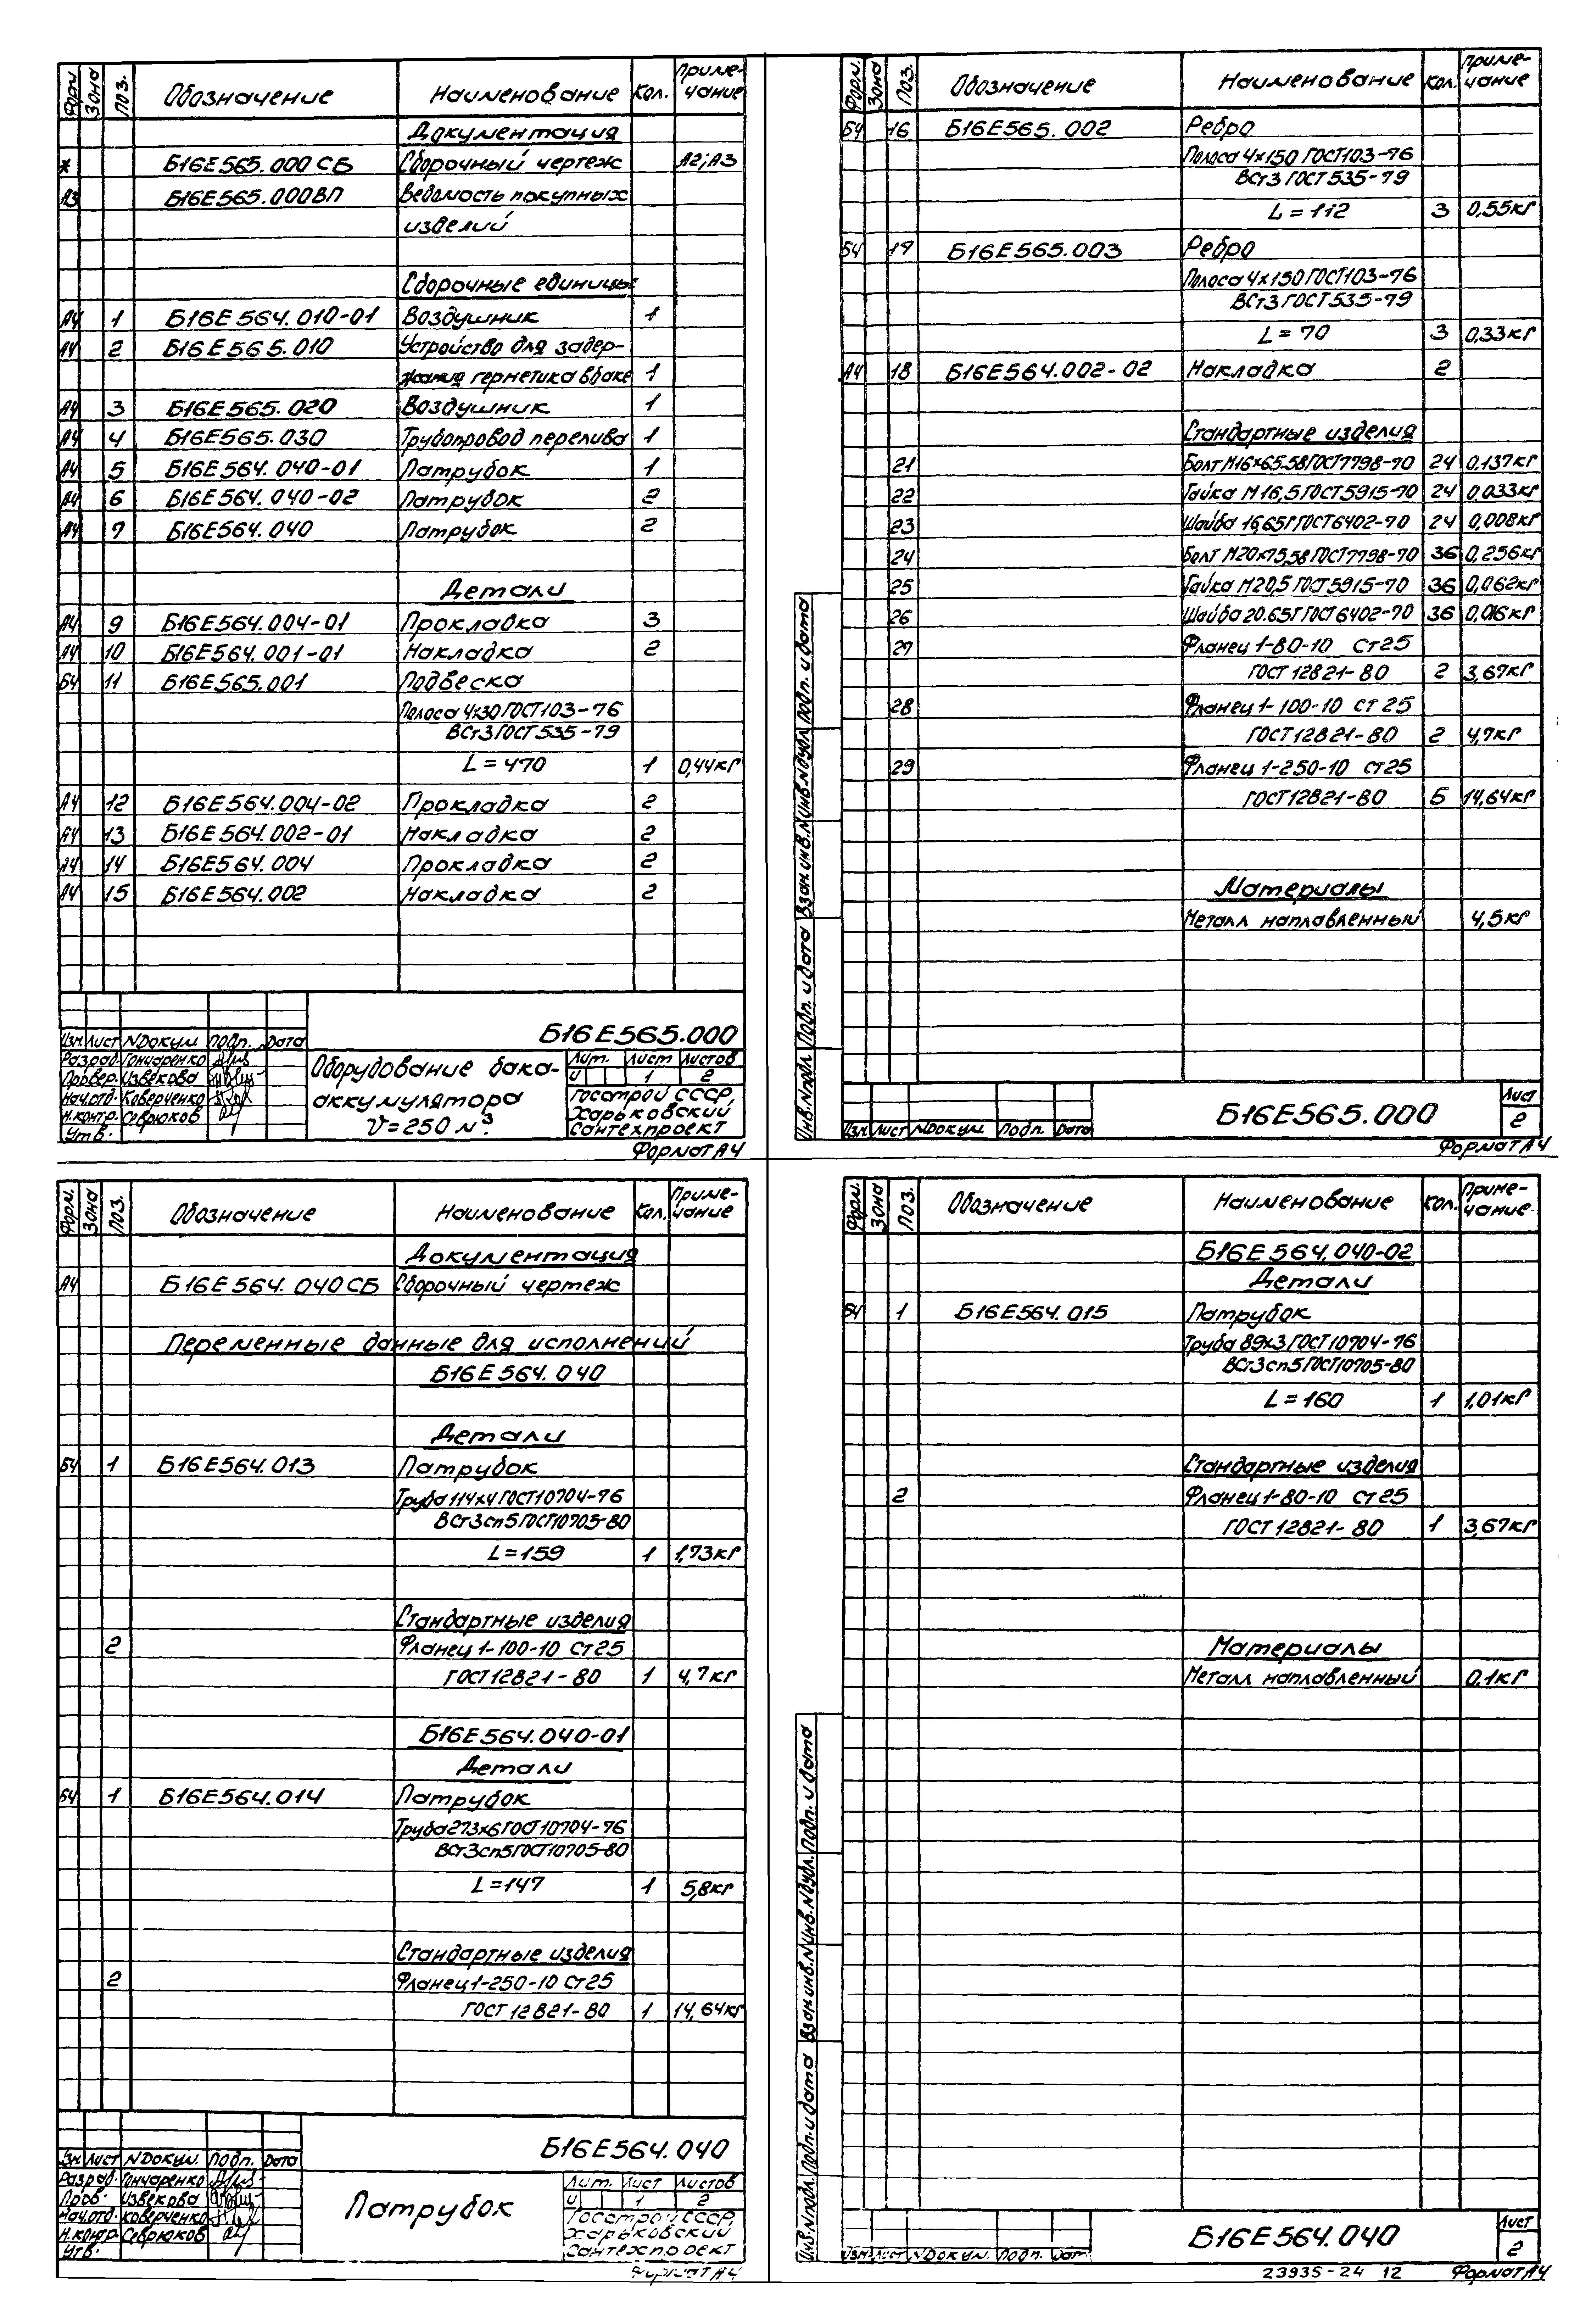 Форм. Зона Поз. Обозначение Наименование Кол. Приме-чание
Документация
* Б16Е565.000СБ Сборочный чертеж А2;А3
А3 Б16Е565.000ВП Ведомость покупных
изделий
Сборочные единицы
А4 1 Б16Е564.010-01 Воздушник 1
А4 2 Б16Е565.010 Устройство для задер-
жания герметика в баке 1
А4 3 Б16Е565.020 Воздушник 1
А4 4 Б16Е565.030 Трубопровод перелива 1
А4 5 Б16Е564.040-01 Патрубок 1
А4 6 Б16Е564.040-02 Патрубок 2
А4 7 Б16Е564.040 Патрубок 2
Детали
А4 9 Б16Е564.004-01 Прокладка 3
А4 10 Б16Е564.001-01 Накладка 2
БЧ 11 Б16Е565.001 Подвеска
Полоса 4х30 ГОСТ103-76
ВСт3 ГОСТ535-79
L=470 1 0,44кг
А4 12 Б16Е564.004-02 Прокладка 2
А4 13 Б16Е564.002-01 Накладка 2
А4 14 Б16Е564.004 Прокладка 2
А4 15 Б16Е564.002 Накладка 2
Б16Е565.000
Изм. Лист №Докум. Подп. Дата
Разраб. Гончаренко
Провер. Извекова
Нач.отд. Коверченко
Н.контр. Севрюков
Утв.
Оборудование бака-
аккумулятора
V=250 м³.
Лит. Лист Листов
И 1 2
Госстрой СССР,
Харьковский
Сантехпроект
Формат А4
Форм. Зона Поз. Обозначение Наименование Кол. Приме-чание
БЧ 16 Б16Е565.002 Ребро
Полоса 4х150 ГОСТ103-76
ВСт3 ГОСТ535-79
L=112 3 0,55кг
БЧ 17 Б16Е565.003 Ребро
Полоса 4х150 ГОСТ103-76
ВСт3 ГОСТ535-79
L=70 3 0,33кг
А4 18 Б16Е564.002-02 Накладка 2
Стандартные изделия
21 Болт М16х65.58 ГОСТ7798-70 24 0,137кг
22 Гайка М16,5 ГОСТ5915-70 24 0,033кг
23 Шайба 16,65Г ГОСТ6402-70 24 0,008кг
24 Болт М20х75,58 ГОСТ7798-70 36 0,256кг
25 Гайка М20,5 ГОСТ5915-70 36 0,062кг
26 Шайба 20.65Г ГОСТ6402-70 36 0,016кг
27 Фланец 1-80-10 Ст25
ГОСТ 12821-80 2 3,67кг
28 Фланец 1-100-10 ст25
ГОСТ12821-80 2 4,7кг
29 Фланец 1-250-10 ст25
ГОСТ12821-80 5 14,64кг
Материалы
Металл наплавленный 4,5кг
Инв.№подл. Подп. и дата Взам.инв.№ Инв.№дубл. Подп. и дата
Изм. Лист №Докум. Подп. Дата
Б16Е565.000
Лист
2
Формат А4
Форм. Зона Поз. Обозначение Наименование Кол. Приме-чание
Документация
А4 Б16Е564.040СБ Сборочный чертеж
Переменные данные для исполнений
Б16Е564.040
Детали
БЧ 1 Б16Е564.013 Патрубок
Труба 114х4 ГОСТ10704-76
ВСт3сп5 ГОСТ10705-80
L=159 1 1,73кг
Стандартные изделия
2 Фланец 1-100-10 Ст25
ГОСТ12821-80 1 4,7кг
Б16Е564.040-01
Детали
БЧ 1 Б16Е564.014 Патрубок
Труба 273х6 ГОСТ10704-76
ВСт3сп5 ГОСТ10705-80
L=147 1 5,8кг
Стандартные изделия
2 Фланец 1-250-10 Ст25
ГОСТ 12821-80 1 14,64кг
Б16Е564.040
Изм. Лист №Докум. Подп. Дата
Разраб. Гончаренко
Пров. Извекова
Нач.отд. Коверченко
Н.контр. Севрюков
Утв.
Патрубок
Лит. Лист Листов
И 1 2
Госстрой СССР,
Харьковский
Сантехпроект
Формат А4
Форм. Зона Поз. Обозначение Наименование Кол. Приме-чание
Б16Е564.040-02
Детали
БЧ 1 Б16Е564.015 Патрубок
Труба 89х3 ГОСТ10704-76
ВСт3сп5 ГОСТ10705-80
L=160 1 1,01кг
Стандартные изделия
2 Фланец 1-80-10 Ст25
ГОСТ 12821-80 1 3,67кг
Материалы
Металл наплавленный 0,1кг
Инв.№подл. Подп. и дата Взам.инв.№ Инв.№дубл. Подп. и дата
Изм. Лист №Докум. Подп. Дат
Б16Е564.040
Лист
2
23935-24 12 Формат А4